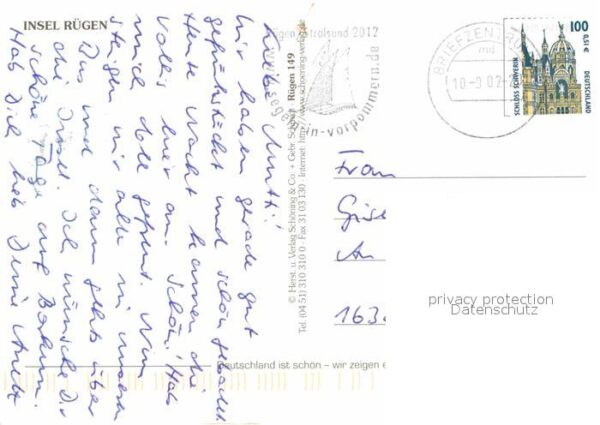 INSEL RÜGEN
Liebe Mutti!
Wir haben gerade gut
gefrühstückt und schön gebadet.
Heute Nacht kamen die
hier an. Schön! Hab
mich doll gefreut. Nun
steigen wir alle in unseren
und dann gehts über
die Insel. Ich wünsche Dir
schöne Tage auf Borkum.
Hab Dich lieb Deine
© Herst. u. Verlag Schöning & Co. + Gebr. Schmidt Rügen 149
Tel. (04 51) 310 310 0 · Fax 31 03 130 · Internet: http://www.schoening-verlag.de
Deutschland ist schön – wir zeigen e
Stralsund 2012
in-vorpommern.de
BRIEFZENTRUM
md
SCHLOSS SCHWERIN
100
0,51 €
DEUTSCHLAND
Frau
An
163
privacy protection
Datenschutz